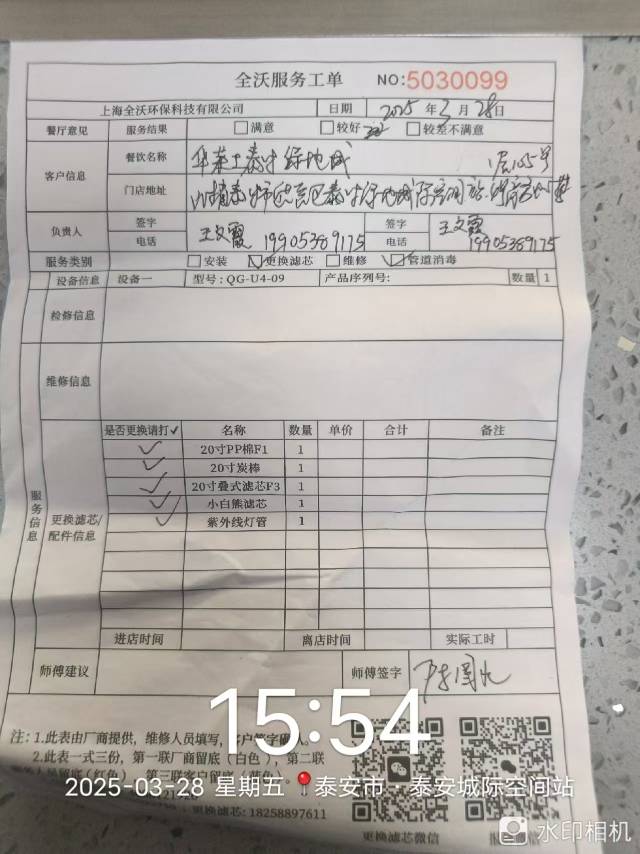 全沃服务工单 NO:5030099
上海全沃环保科技有限公司 日期 2025 年 3 月 28 日
餐厅意见 服务结果 满意 较好 较差不满意
客户信息 餐饮名称 华莱士泰安绿地城
门店地址
负责人 签字 王文霞 签字 王文霞
电话 19905389175 电话 19905389175
服务类别 安装 更换滤芯 维修 管道消毒
设备信息 设备一 型号:QG-U4-09 产品序列号: 数量 1
检修信息
维修信息
服务信息
更换滤芯/配件信息
是否更换请打✓ 名称 数量 单价 合计 备注
✓ 20寸PP棉F1 1
✓ 20寸炭棒 1
✓ 20寸叠式滤芯F3 1
✓ 小白熊滤芯 1
✓ 紫外线灯管 1
进店时间 离店时间 实际工时
师傅建议 师傅签字
15:54
注:1.此表由厂商提供，维修人员填写，客户签字确认。
2.此表一式三份，第一联厂商留底(白色)，第二联
留底(红色) 第三联客户留底
2025-03-28 星期五 泰安市·泰安城际空间站
18258897611
更换滤芯微信
水印相机